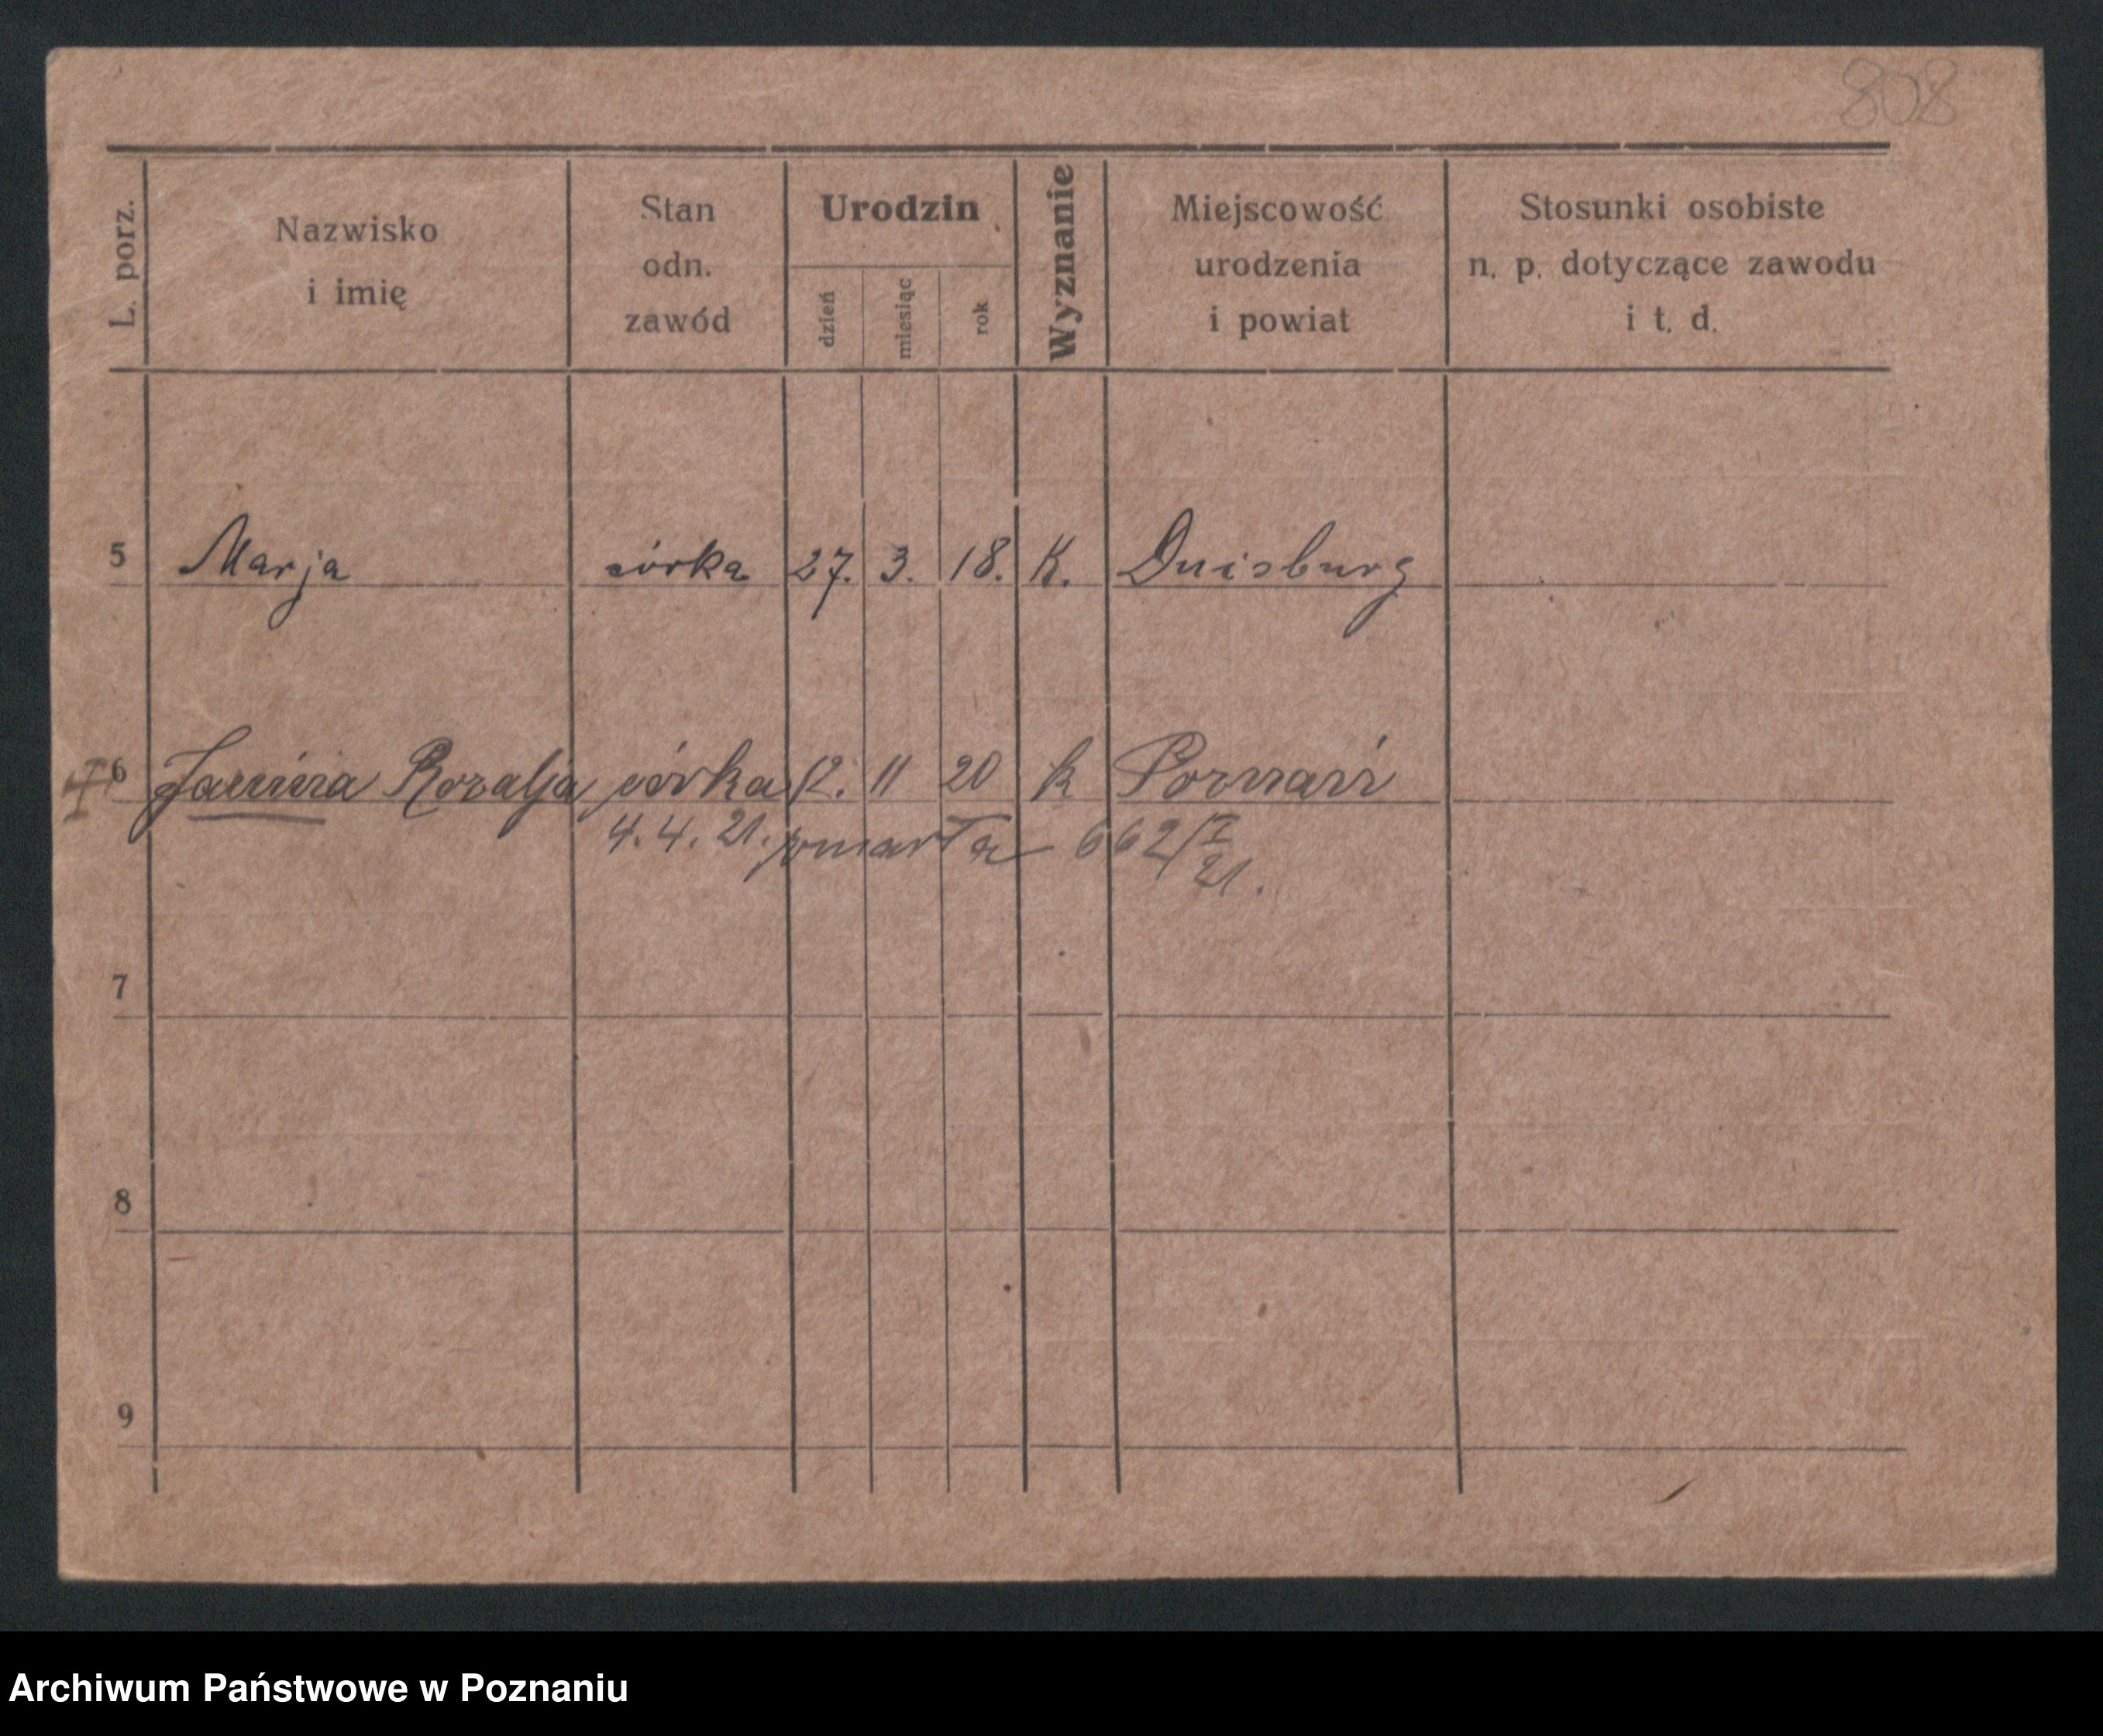 808
L. porz. Nazwisko i imię Stan odn. zawód Urodzin dzień miesiąc rok Wyznanie Miejscowość urodzenia i powiat Stosunki osobiste n. p. dotyczące zawodu i t. d.
5 Marja córka 27. 3. 18. K. Duisburg
6 Janina Rozalja córka 12. 11 20 k Poznań
4. 4. 21. zmarła 662/I 21.
7
8
9
Archiwum Państwowe w Poznaniu